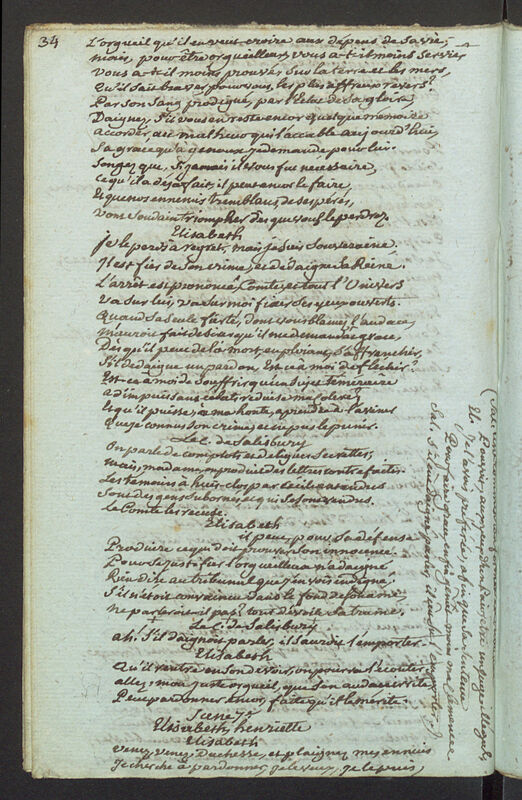 34
L'orgueil qu'il en veut croire aux dépens de sa vie,
mais, pour être orgueilleux, vous a-t-il moins servie
Vous a-t-il moins prouvé, sur la terre et les mers,
Qu'il sait braver pour vous, les plus affreux revers?
Par son sang prodigué, par l'éclat de sa gloire
Daignez, s'il vous en reste encor quelque mémoire
accorder au malheur qui l'accable aujourd'hui,
Sa grace qu'à genoux je demande pour lui.
Songez que, si jamais il vous fut nécessaire,
ce qu'il a déja fait, il peut encor le faire,
Et que nos ennemis tremblans, désespérés,
Vont soudain triompher dès que vous le perdrez.
Elisabeth
Je le perds à regret, mais je suis Souveraine.
Il est fier de son crime, et dédaigne sa Reine.
L'arrêt est prononcé, Comte; et tout l'Univers
Va sur lui, va sur moi fixer ses yeux ouverts.
Quand sa seule fierté, dont vous blâmez l'audace
m'auroit fait désirer qu'il me demandat grace,
Dès qu'il peut de la mort, en priant, s'affranchir,
S'il dédaigne un pardon, Est-ce à moi de fléchir?
Est-ce à moi de souffrir qu'un sujet téméraire
ad impuissans éclats réduise ma colère,
Et qu'il puisse, à ma honte, apprendre à l'avenir
Que je connus son crime, et n'osai le punir.
Le C. de Salisbury
On parle de complots et de ligues secrettes;
mais, madame, on produit des lettres contrefaites.
Les témoins à huis clos par Cécile entendus
Sont des gens subornés et qui se sont vendus.
Le Comte les récuse.
Elisabeth
il peut, pour sa défense
Produire ce qui doit prouver son innocence.
Pour se justifier l'orgueilleux n'a daigné
Rien dire au tribunal que j'envois indigné,
S'il n'étoit convaincu dans le fond de son ame
ne parleroit-il pas? tout dévoile sa trame.
Le C. de Salisbury
ah! s'il daignoit parler, il sauroit l'emporter.
Elisabeth
Qu'il rentre en son devoir, on pourra l'écouter.
allez; mon juste orgueil, que son audace irrite
Peut pardonner encor, faites qu'il le mérite.
Scene
Elisabeth, henriette
Elisabeth
venez, venez, Duchesse, et plaignez mes ennuis
Je cherche à pardonner, je le veux, je le puis,